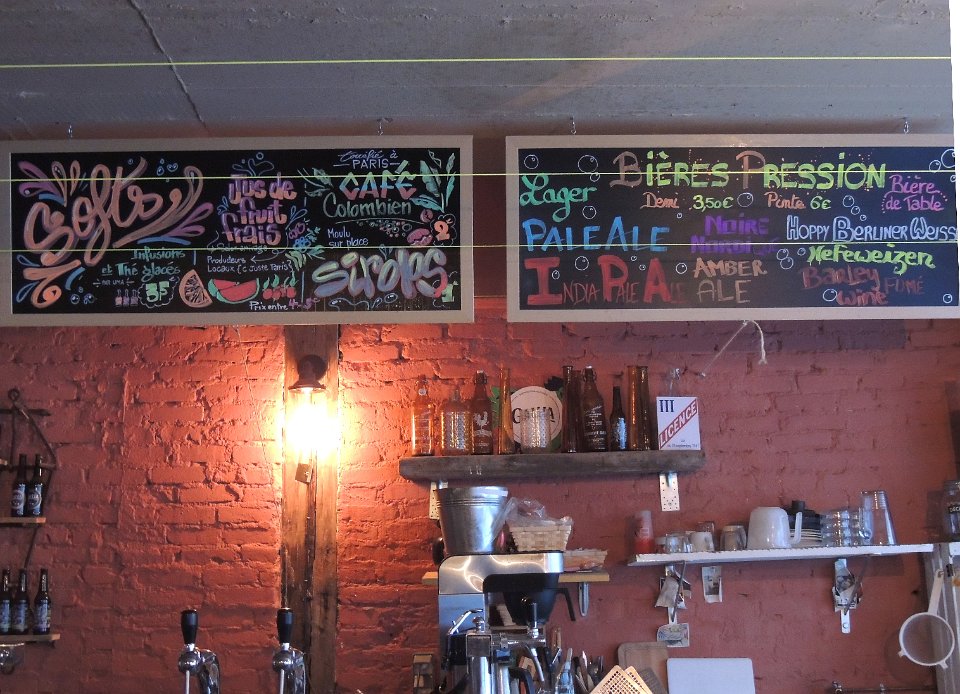 Softs
Infusions
et Thé glacés
Jus de
fruit
frais
Producteurs
Locaux (C juste Paris)
Prix entre
torréfié à
PARIS
CAFÉ
Colombien
Moulu
sur place
2
Sirops
1
BIÈRES PRESSION
Demi 3,50€ Pinte 6€
Lager
PALE ALE
INDIA PALE ALE
NOIRE
AMBER
ALE
Bière
de Table
HOPPY BERLINER WEISS
HEFEWEIZEN
BARLEY
WINE
FUMÉ
III
LICENCE